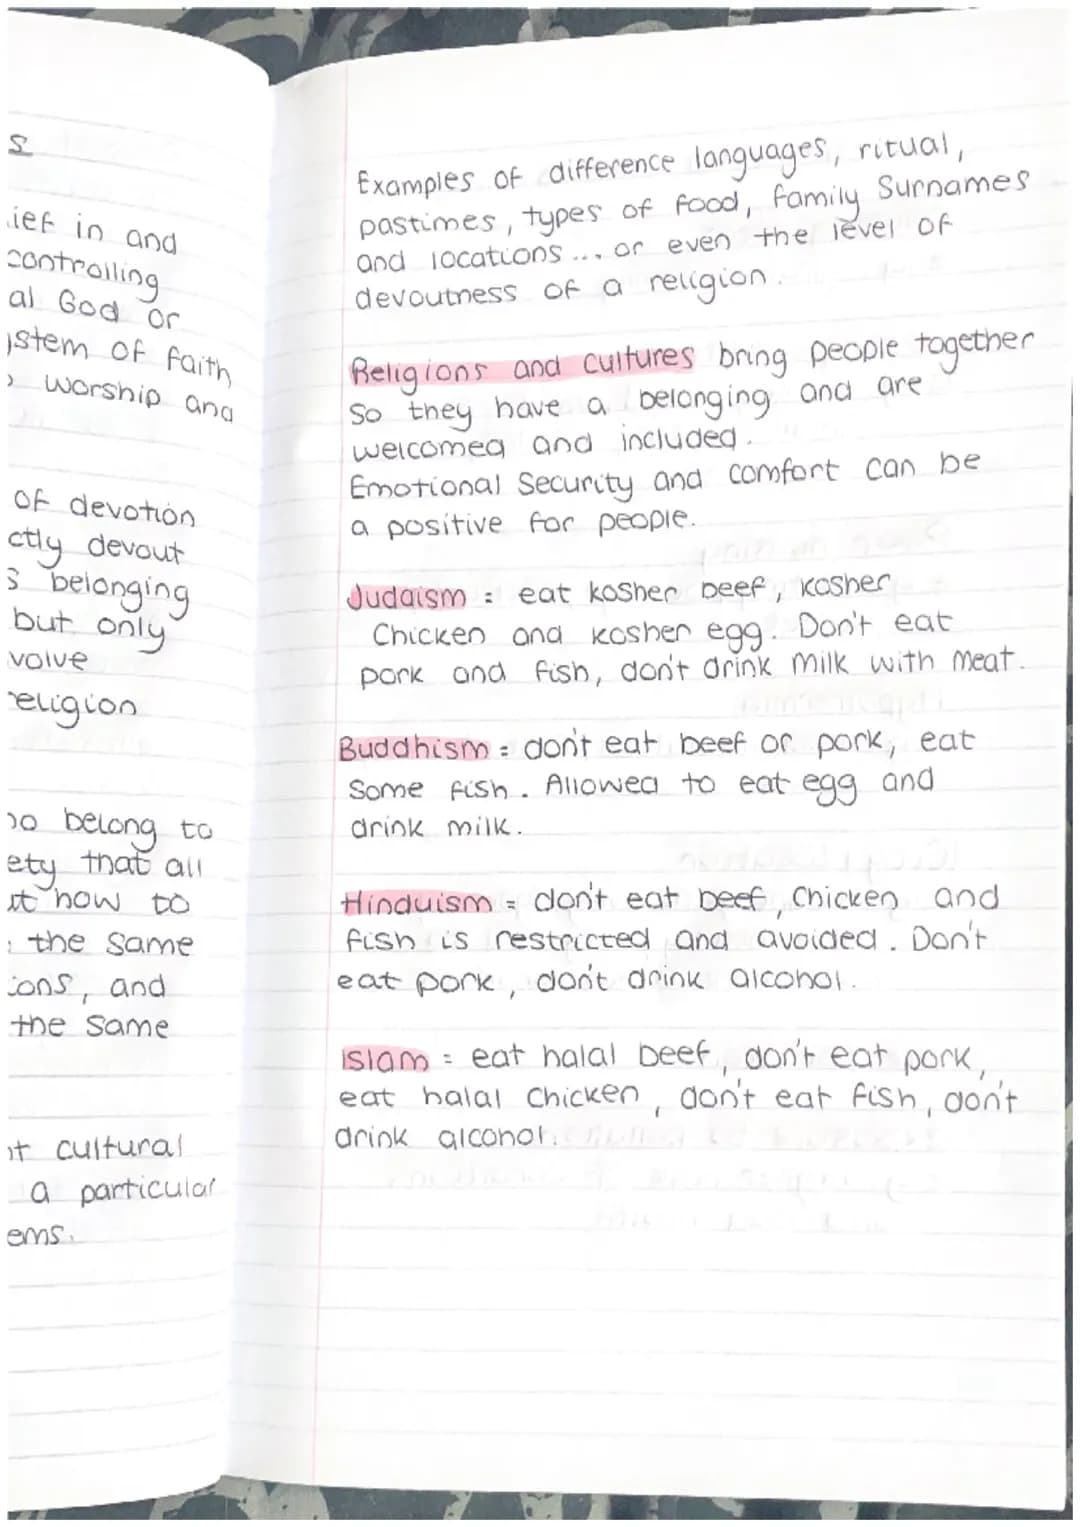 s
ief in and
controlling
al God or
ystem of faith
worship and
of devotion
ctly devout
s belonging
but only
volve
religion
o belong to
ety that all
ut how to
the same
ions, and
the same
nt cultural
a particular
ems.
Examples of difference languages, ritual,
pastimes, types of food, family Surnames
and locations ... or even the level of
devoutness of a religion.
Religions and cultures bring people together
So they have a belonging and are
welcomed and included.
Emotional Security and comfort can be
a positive for people.
Judaism : eat kosher beef, kosher
Chicken and kosher egg. Don't eat
pork and fish, don't drink milk with meat.
Buddhism = don't eat beef or pork, eat
Some fish. Allowed to eat egg and
drink milk.
Hinduism = don't eat beef, Chicken and
fish is restricted and avoided. Don't
eat pork, don't drink alcohol.
Islam = eat halal beef, don't eat pork,
eat halal Chicken, don't eat fish, don't
drink alcohol.